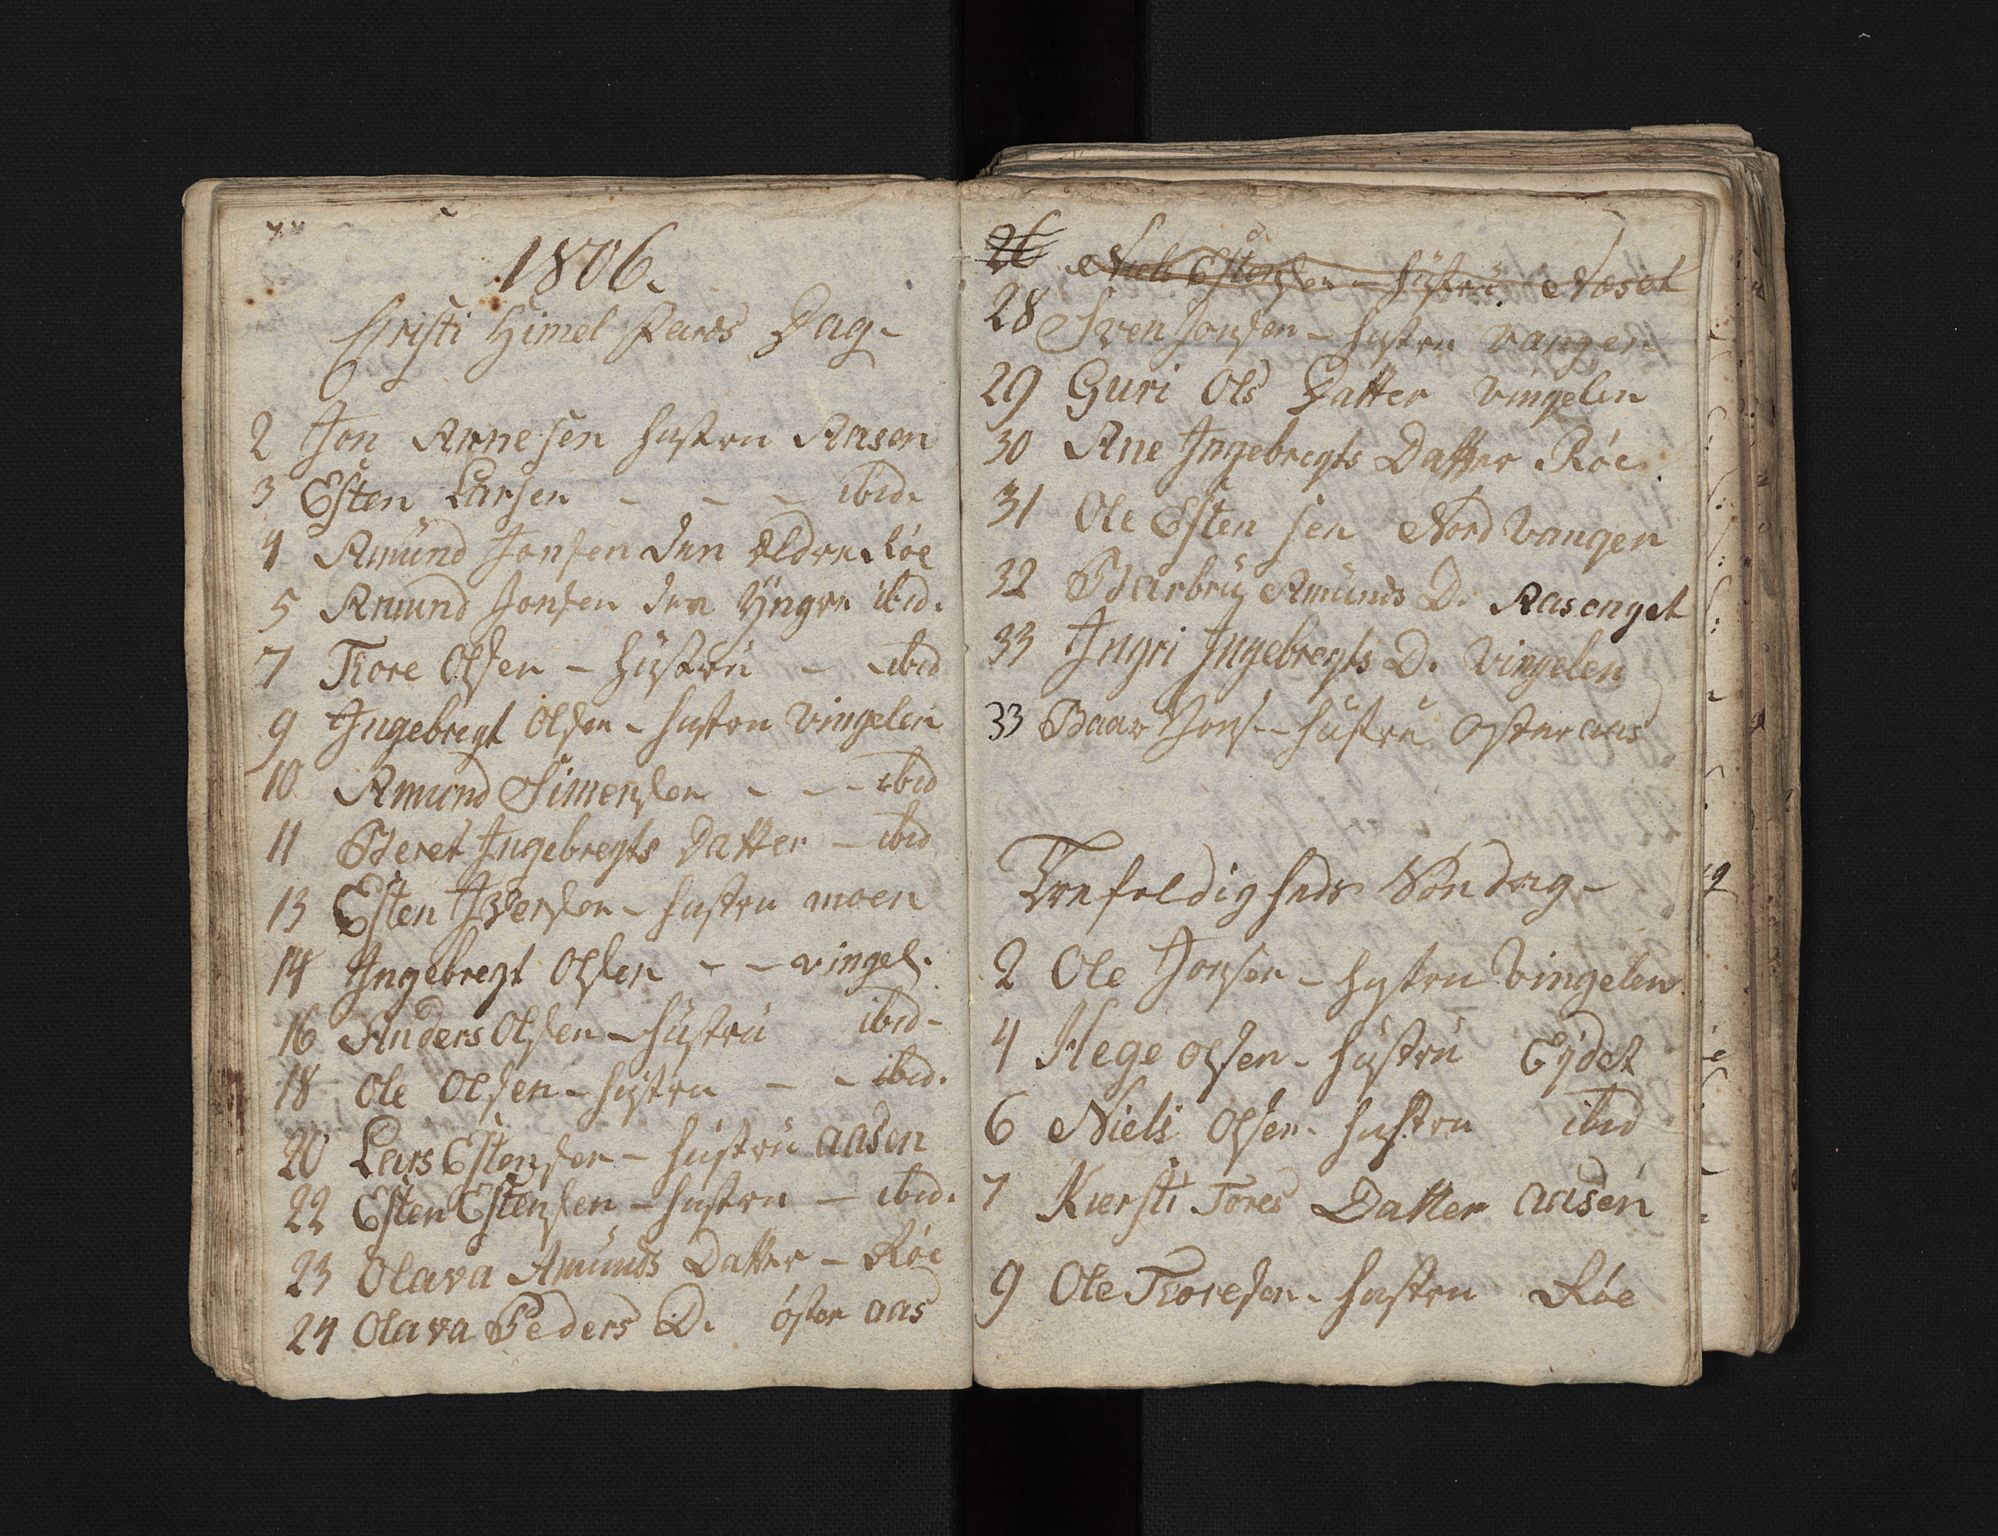 1806.
Christi Himel Fards Dag-
2 Jon Arnesen hustru Aasen
3 Esten Larsen - - - ibid.
4 Amund Jonsen den Eldre Røe
5 Amund Jonsen den Yngre ibid.
7 Tore Olsen - hustru - - ibid
9 Ingebregt Olsen - hustru Vingelen
10 Amund Simensen - - - ibid
11 Beret Ingebregts Datter - ibid
13 Esten Iversen - hustru moen
14 Ingebregt Olsen - - vingel.
16 Anders Olsen - hustru ibid-
18 Ole Olsen - hustru - - ibid.
20 Lars Estensen - hustru aasen
22 Esten Estensen - hustru - ibid.
23 Olava Amunds Datter - Røe
24 Olava Peders D. øster aas
26 Niels Estensen - hustru Næset
28 Sven Jonsen - hustru vangen
29 Guri Ols Datter vingelen
30 Ane Ingebregts Datter Røe
31 Ole Esten sen Nord Vangen
32 Barbru Amunds D. Aasenget
33 Ingri Ingebregts D. Vingelen
33 Baar Jons. - hustru Øster aas
Trefoldigheds Søndag-
2 Ole Jonsen - hustru Vingelen
4 Hege Olsen - hustru Eydet
6 Niels Olsen - hustru ibid
7 Kiersti Tores Datter aasen
9 Ole Toresen - hustru Røe